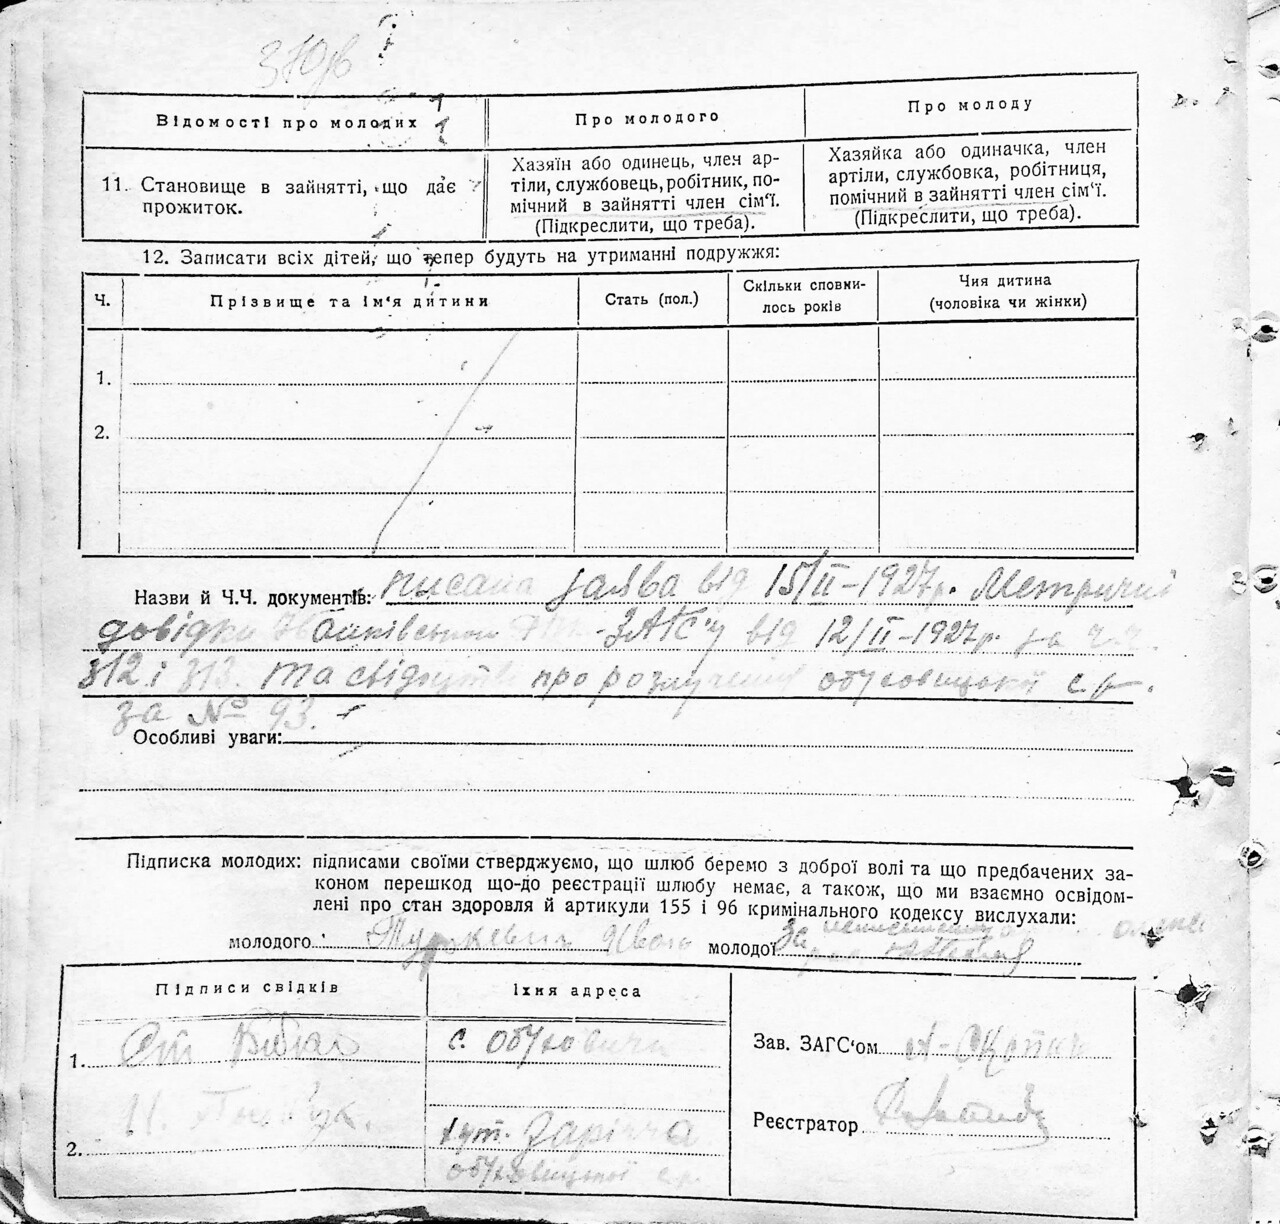 Відомості про молодих
Про молодого
Про молоду
11. Становище в зайнятті, що дає
прожиток.
Хазяїн або одинець, член ар-
тіли, службовець, робітник, по-
мічний в зайнятті член сім'ї.
(Підкреслити, що треба).
Хазяйка або одиначка, член
артіли, службовка, робітниця,
помічний в зайнятті член сім'ї.
(Підкреслити, що треба).
12. Записати всіх дітей, що тепер будуть на утриманні подружжя:
Ч.
Прізвище та ім'я дитини
Стать (пол.)
Скільки сповни-
лось років
Чия дитина
(чоловіка чи жінки)
1.
2.
Назви й Ч.Ч. документів: писана заява від 15/II-1927р. Метричні
довідки ЗАГС'у від 12/II-1927р. за ч.ч.
312 і 313. та свідоцтво про розлучення обуховицької с.р.
за № 93.
Особливі уваги:
Підписка молодих: підписами своїми стверджуємо, що шлюб беремо з доброї волі та що предбачених за-
коном перешкод що-до реєстрації шлюбу немає, а також, що ми взаємно освідом-
лені про стан здоровля й артикули 155 і 96 кримінального кодексу вислухали:
молодого молодої за
Підписи свідків
Їхня адреса
1. с. Обуховичи
2. хут. Заріччя
обуховицької с.р.
Зав. ЗАГС'ом
Реєстратор